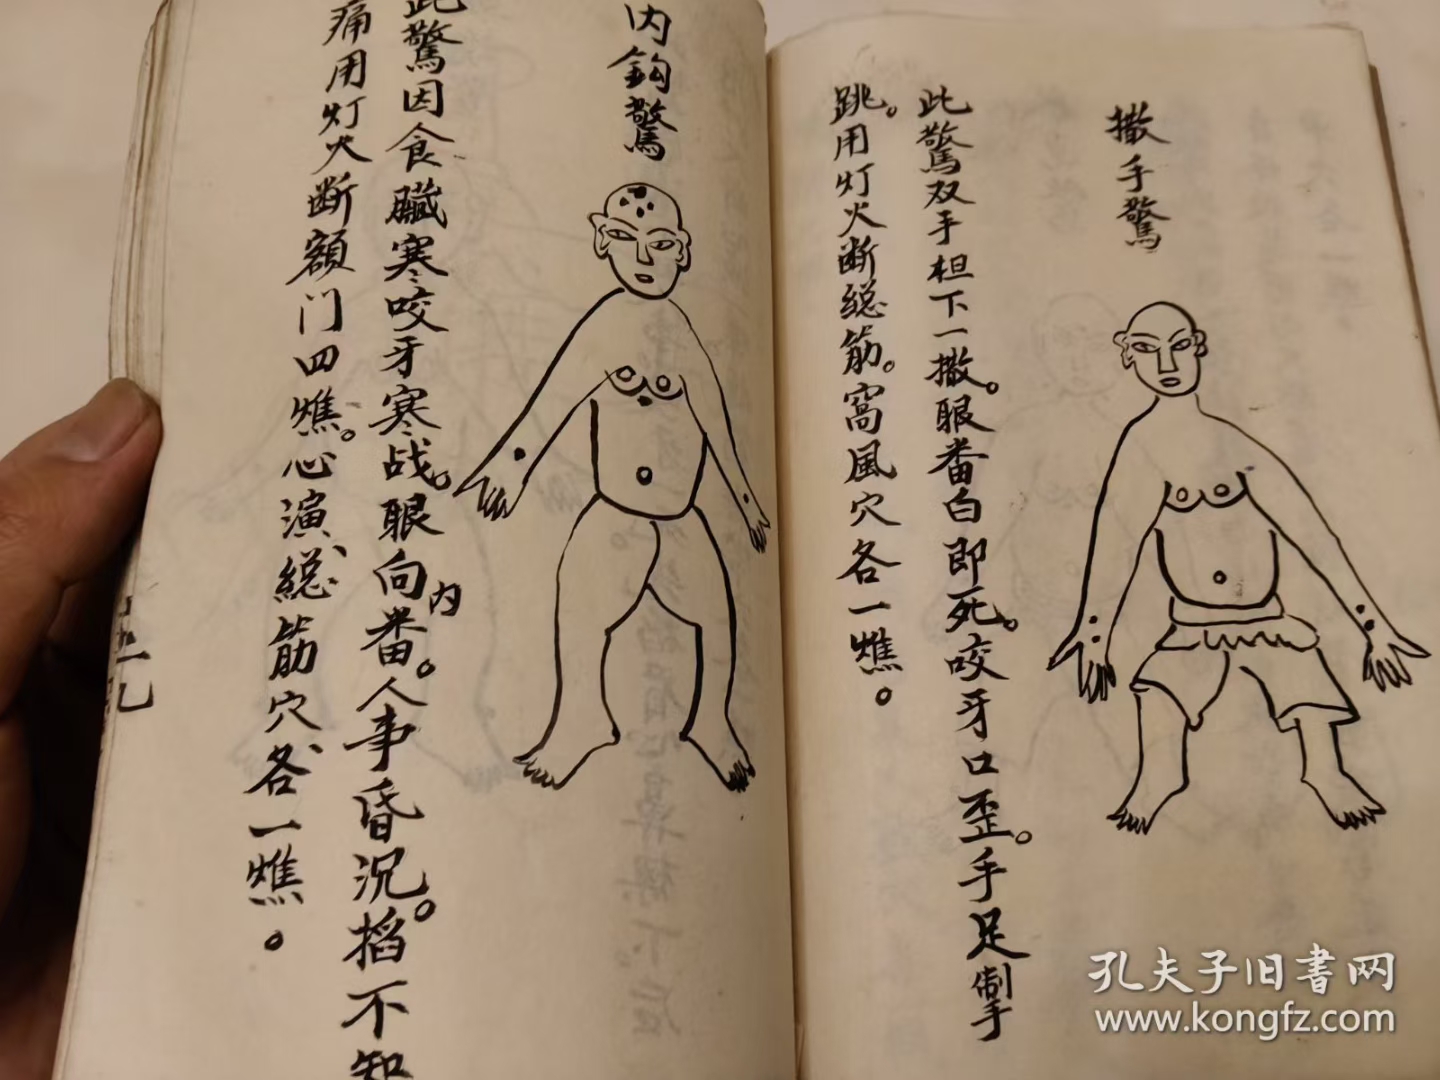 撒手驚
此驚双手柦下一撒。眼番白即死。咬牙口歪。手足掣
跳。用灯火断總筋。窩風穴各一燋。
内鈎驚
此驚因食臟寒咬牙寒战。眼向内番。人事昏况。掐不知
痛用灯火断額门四燋。心演、總筋穴各一燋。
孔夫子旧書网
www.kongfz.com